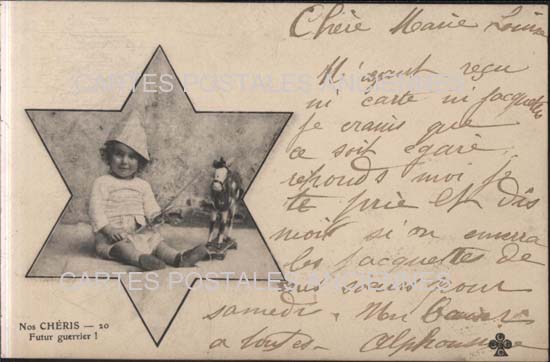 Chère Marie Louise
N'ayant reçu
ni carte ni jaquette
je crains que
ce soit égaré
réponds moi je
te prie et dis
moi si on enverra
les jaquettes de
pour
samedi. Mon
a toutes Alphonsine
Nos CHÉRIS — 20
Futur guerrier !
CARTES POSTALES ANCIENNES
CARTES POSTALES ANCIENNES